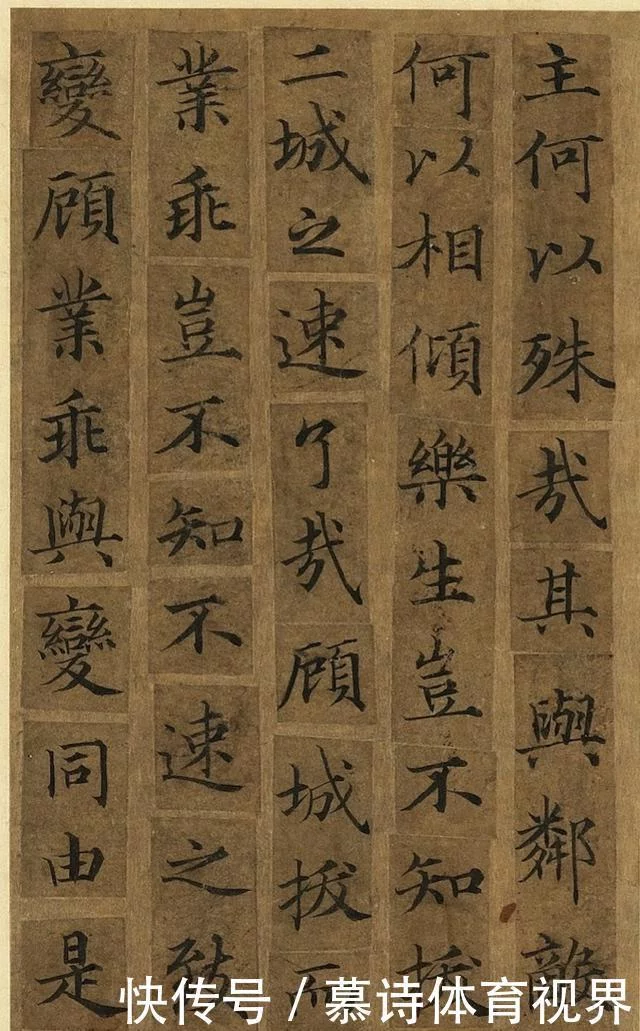 主何以殊哉其與鄰敵
何以相傾樂生豈不知拔
二城之速了哉顧城拔而
業乖豈不知不速之致
變顧業乖與變同由是
快传号 / 慕诗体育视界